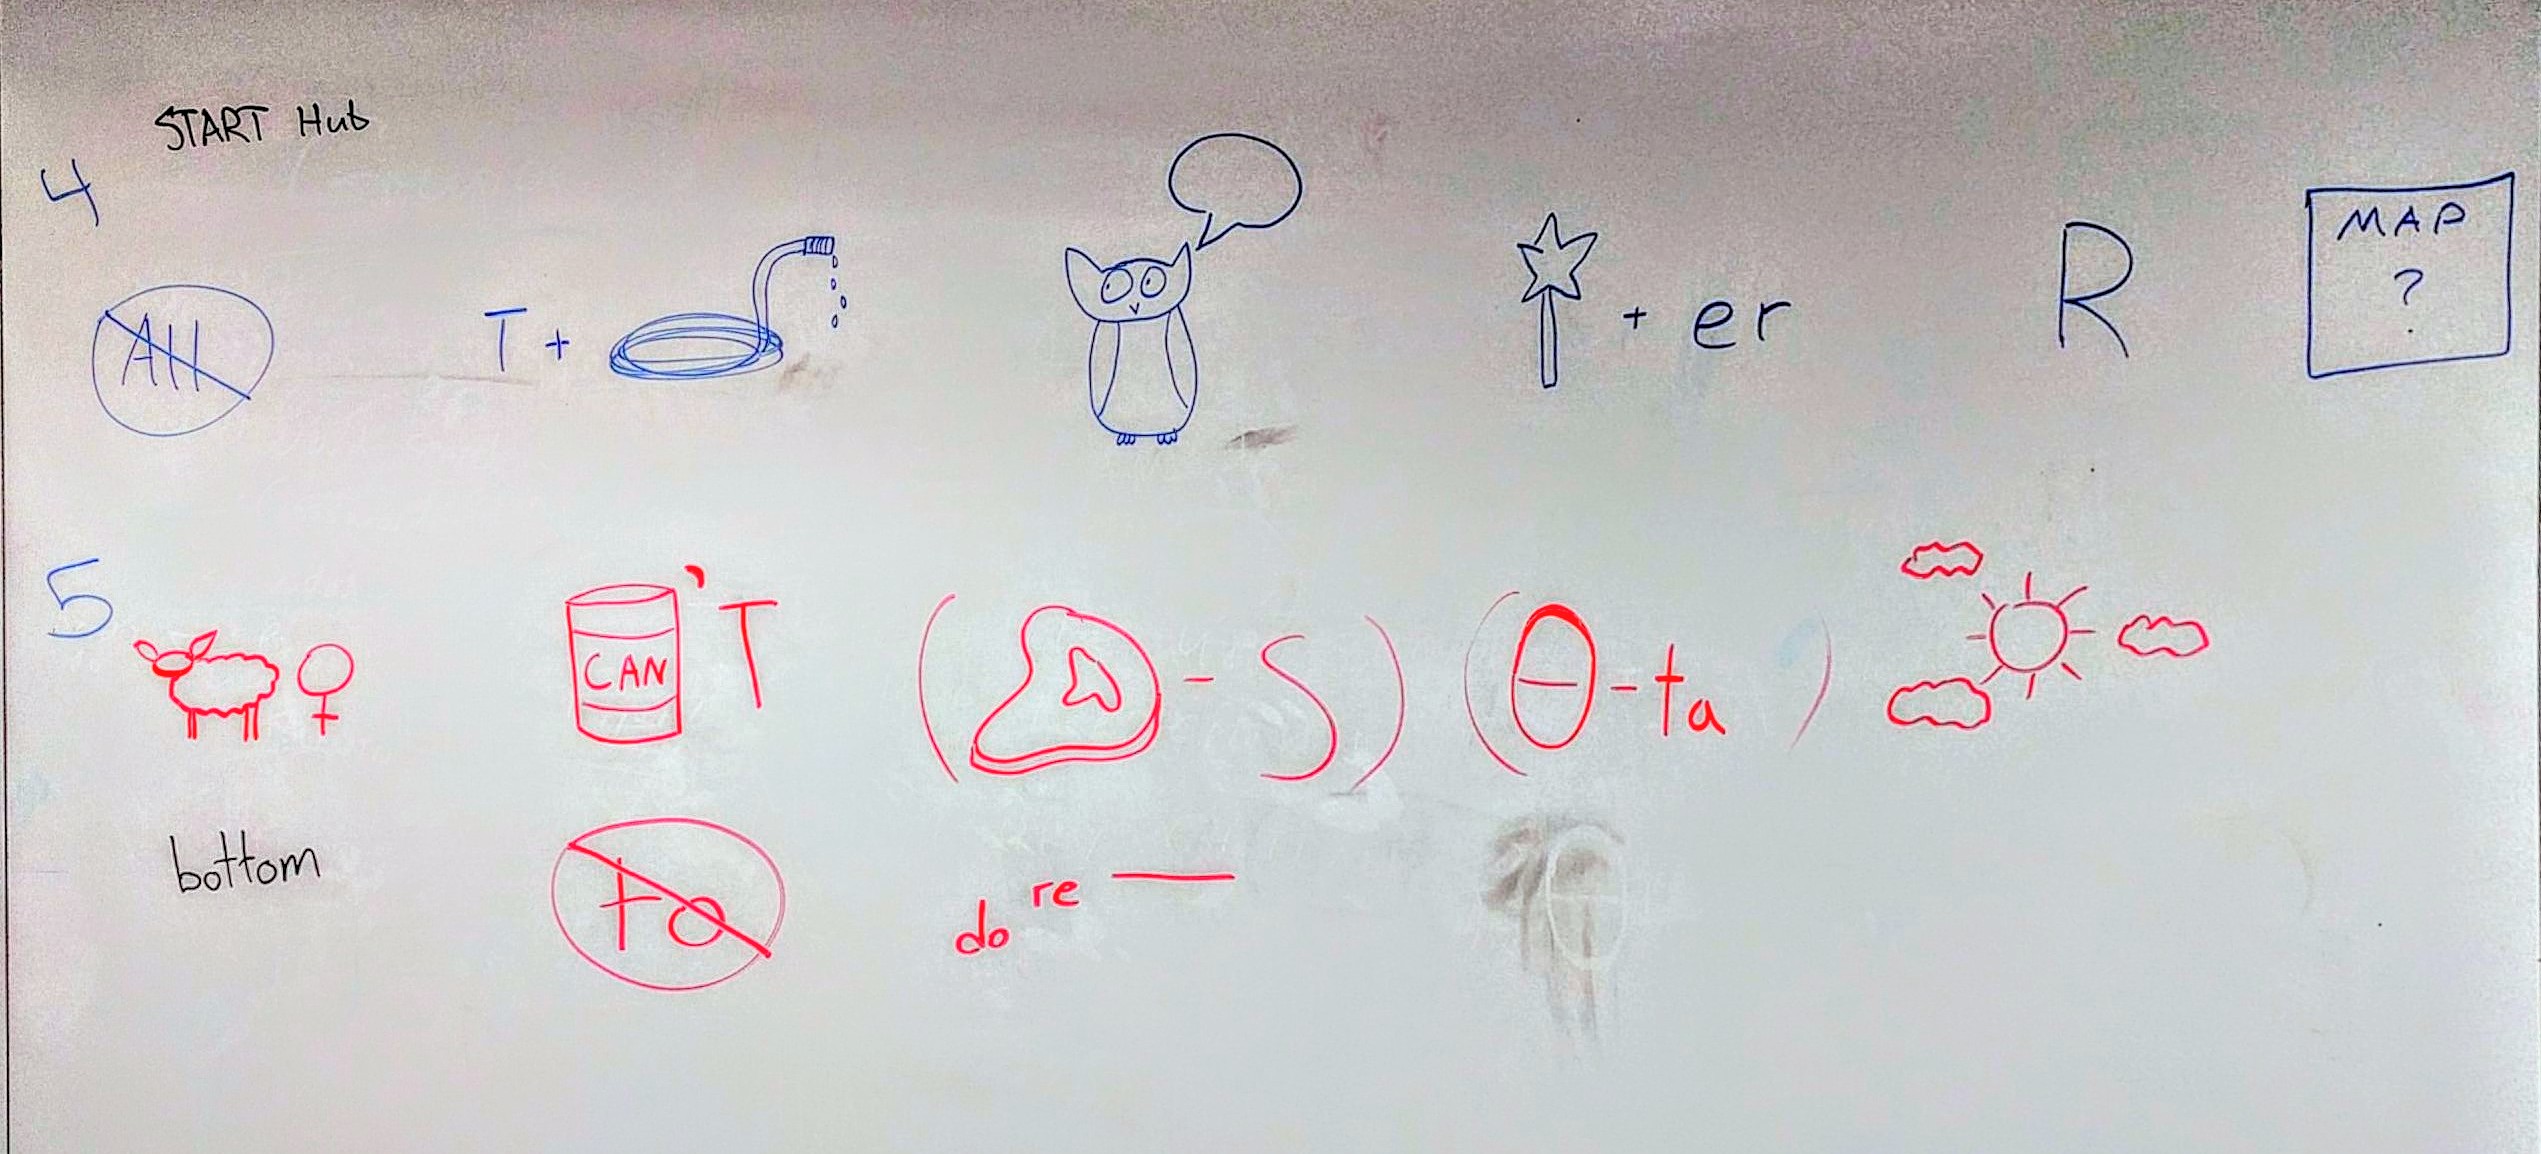 START Hub
4
All T + + er R MAP
?
5
CAN 'T ( - S) (θ - ta)
bottom Fa do re